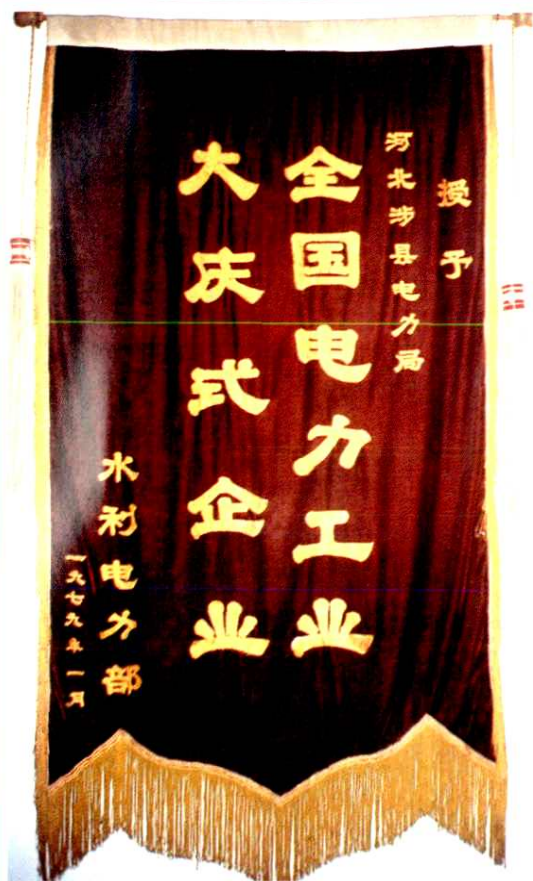 授予
河北涉县电力局
全国电力工业
大庆式企业
水利电力部
一九七九年一月